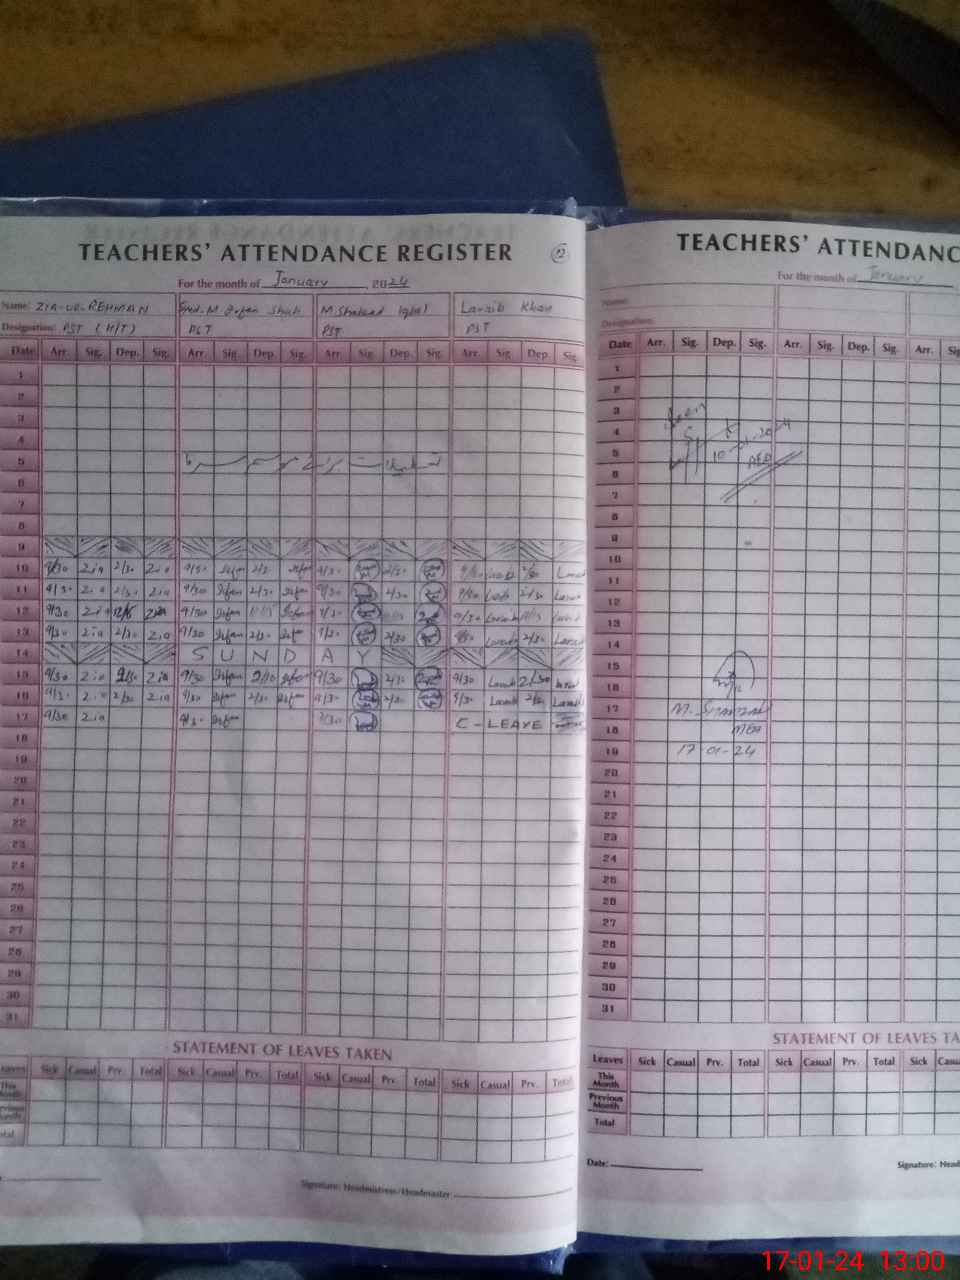 TEACHERS' ATTENDANCE REGISTER
12
For the month of January 2024
Name: ZIA-UR-REHMAN Syed. M. Irfan Shah M. Shakeel Iqbal Laraib Khan
Designation: PST (H/T) PST PST PST
Date Arr. Sig. Dep. Sig. Arr. Sig. Dep. Sig. Arr. Sig. Dep. Sig. Arr. Sig. Dep. Sig.
1
2
3
4
5
6
7
8
9
10 9/30 Zia 2/30 Zia 9/30 Irfan 2/30 Irfan 9/30 2/30 9/30 Laraib 2/30
11 9/30 Zia 2/30 Zia 9/30 Irfan 2/30 Irfan 9/30 2/30 9/30 Laraib 2/30 Laraib
12 9/30 Zia 12/15 Zia 9/30 Irfan 12/15 Irfan 9/30 9/30 Laraib 12/15
13 9/30 Zia 2/30 Zia 9/30 Irfan 2/30 Irfan 9/30 2/30 9/30 Laraib 2/30 Laraib
14 SUNDAY
15 9/30 Zia 2/30 Zia 9/30 Irfan 2/30 Irfan 9/30 2/30 9/30 Laraib 2/30
16 9/30 Zia 2/30 Zia 9/30 Irfan 2/30 Irfan 9/30 2/30 9/30 Laraib 2/30 Laraib
17 9/30 Zia 9/30 Irfan 9/30 C-LEAVE
18
19
20
21
22
23
24
25
26
27
28
29
30
31
STATEMENT OF LEAVES TAKEN
Leaves Sick Casual Prv. Total Sick Casual Prv. Total Sick Casual Prv. Total Sick Casual Prv. Total
Signature: Headmistress/Headmaster
TEACHERS' ATTENDANC
For the month of January
Name:
Designation:
Date Arr. Sig. Dep. Sig. Arr. Sig. Dep. Sig. Arr.
1
2
3
Seen
4
5 10-01-2024
6 AEO
7
8
9
10
11
12
13
14
15
16
17
18 MEA
19 17-01-24
20
21
22
23
24
25
26
27
28
29
30
31
STATEMENT OF LEAVES TA
Leaves Sick Casual Prv. Total Sick Casual Prv. Total Sick
This Month
Previous Month
Total
Date:
Signature: Head
17-01-24 13:00